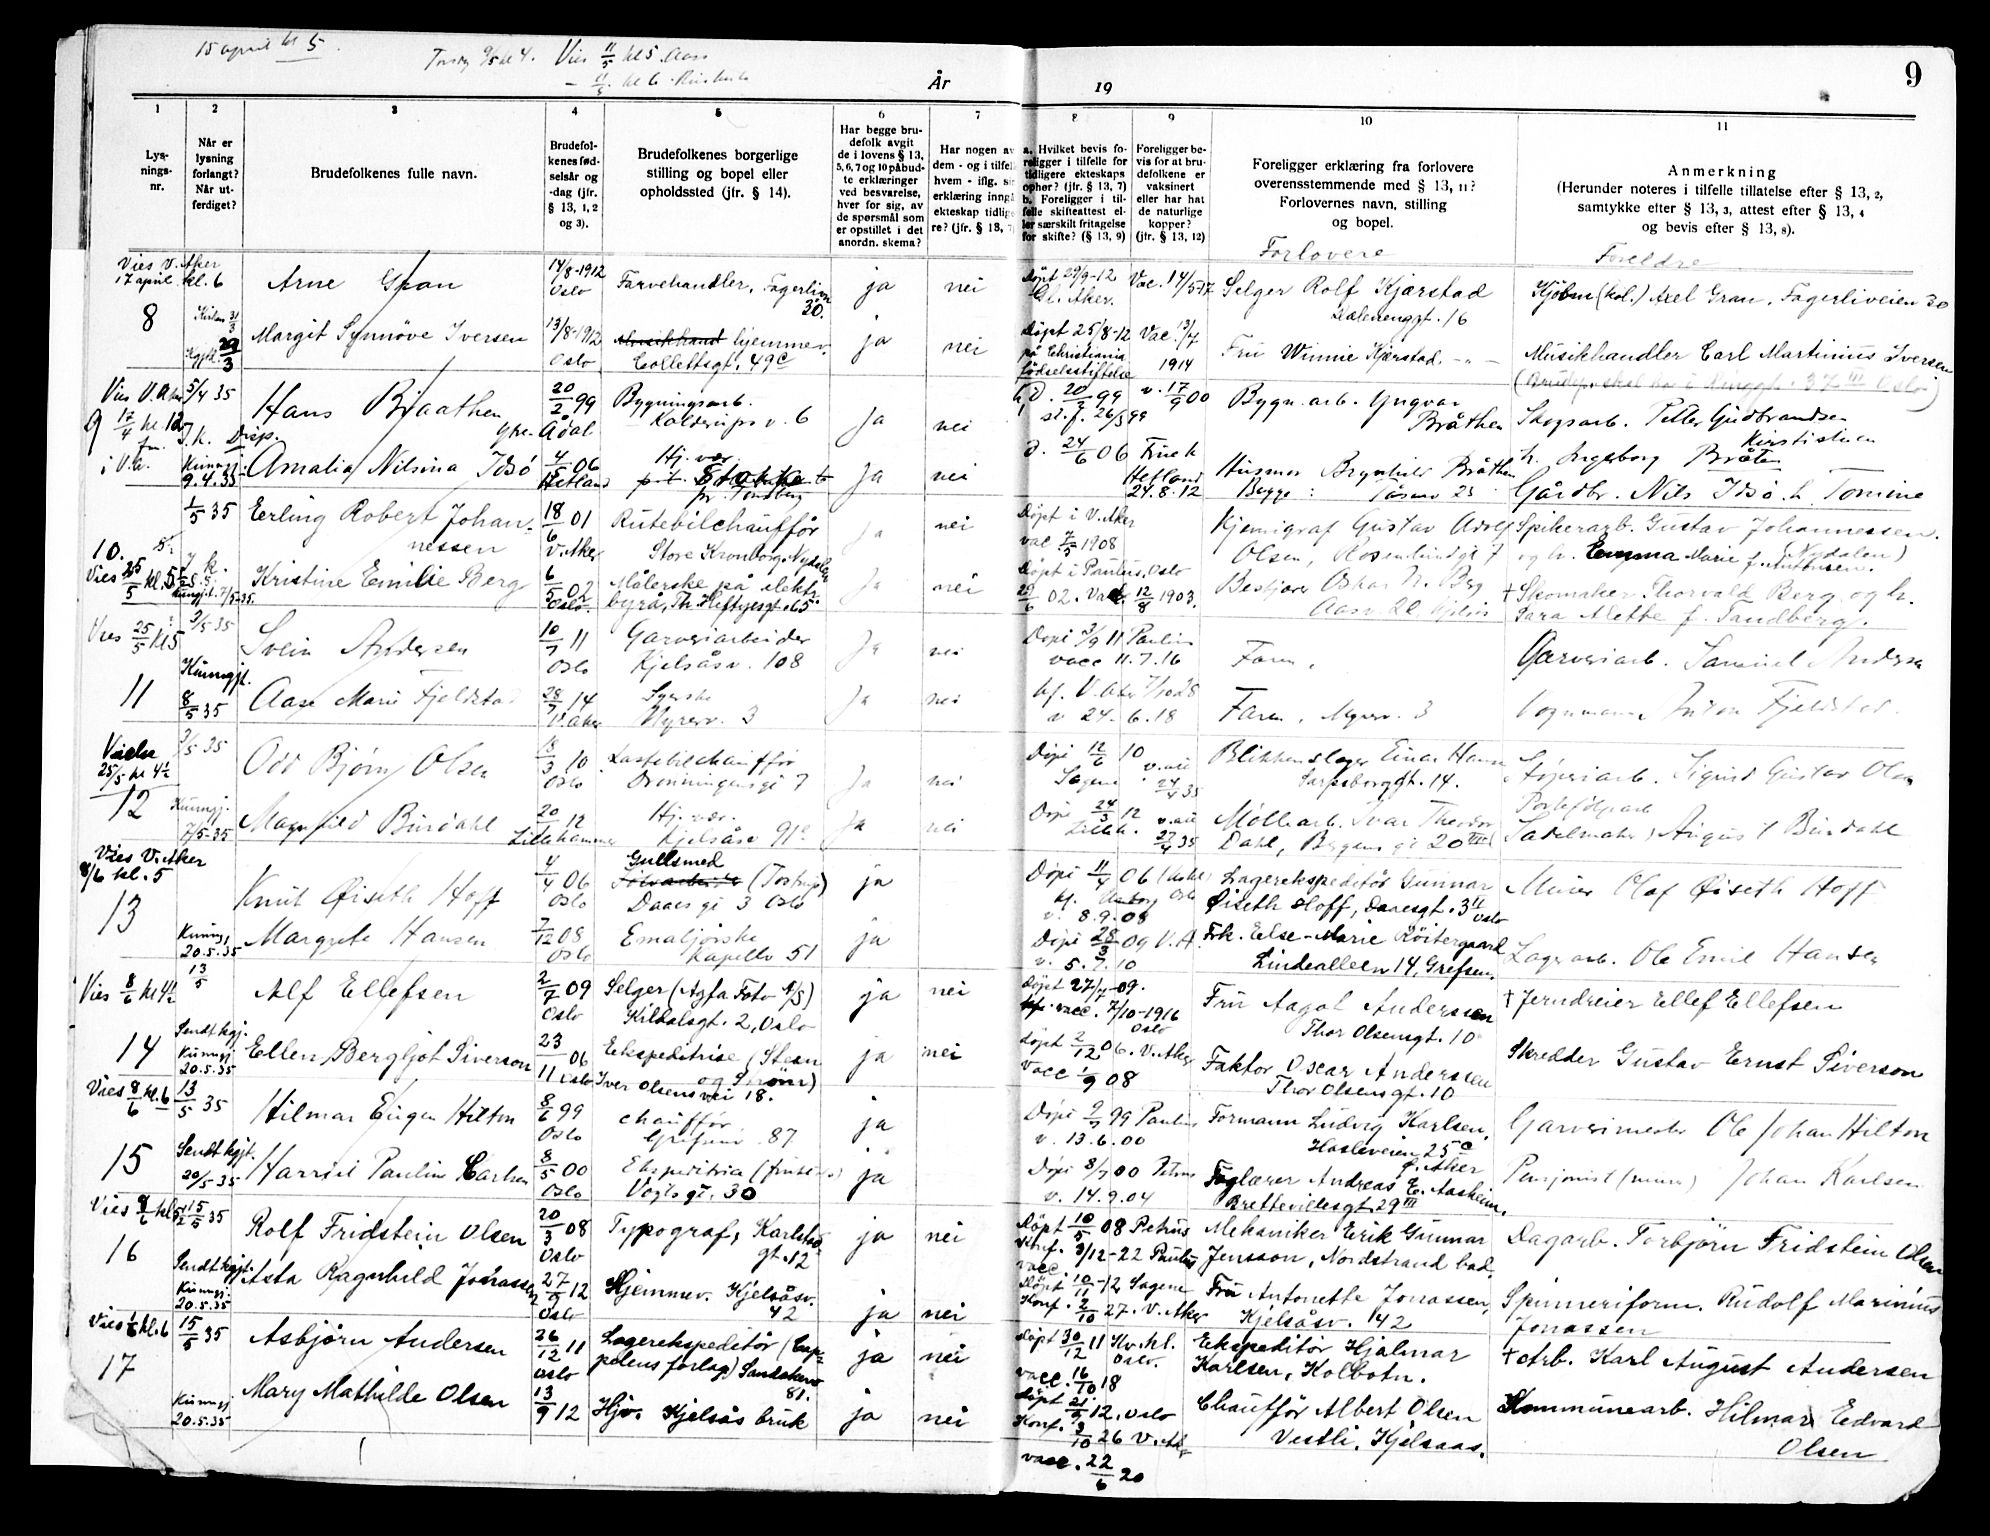 15 april kl 5.
Torsdag 9/5 kl 4. Vies 11/5 kl 5. Aass
11/5 kl 6
År
19
9
1
2
3
4
5
6
7
8
9
10
11
Lys-
nings-
nr.
Når er
lysning
forlangt?
Når ut-
ferdiget?
Brudefolkenes fulle navn.
Brudefol-
kenes fød-
selsår og
-dag (jfr.
§ 13, 1, 2
og 3).
Brudefolkenes borgerlige
stilling og bopel eller
opholdssted (jfr. § 14).
Har begge bru-
defolk avgit
de i lovens § 13,
5, 6, 7 og 10 påbud-
te erklæringer
ved besvarelse,
hver for sig, av
de spørsmål som
er opstillet i det
anordn. skema?
Har nogen av
dem - og i tilfelle
hvem - iflg. sin
erklæring inngått
ekteskap tidlige-
re? (jfr. § 13, 7)
a. Hvilket bevis fo-
religger i tilfelle for
tidligere ekteskaps
ophør? (jfr. § 13, 7)
b. Foreligger i til-
felle skifteattest el-
ler særskilt fritagelse
for skifte? (§ 13, 9)
Foreligger be-
vis for at bru-
defolkene er
vaksinert
eller har hat
de naturlige
kopper?
(jfr. § 13, 12)
Foreligger erklæring fra forlovere
overensstemmende med § 13, 11?
Forlovernes navn, stilling
og bopel.
Forlovere
Anmerkning
(Herunder noteres i tilfelle tillatelse efter § 13, 2,
samtykke efter § 13, 3, attest efter § 13, 4
og bevis efter § 13, 8).
Foreldre
Vies V. Aker
17 april kl. 6
Arne Gran
14/8-1912
Oslo
Farvehandler, Fagerlivn
30.
ja
nei
Døpt 29/9-12
Gl. Aker.
Vac. 14/5-17
Selger Rolf Kjærstad
Dælenenggt. 16
Kjøbm (kol.) Axel Gran, Fagerliveien 30
8
29/3
Margit Synnøve Iversen
13/8-1912
Oslo
hjemmev.
Collettsgt. 49c
ja
nei
Døpt 25/8-12
på Christiania
fødselsstiftelse
Vac. 13/4
1914
Fru Winnie Kjærstad. -"-
Musikhandler Carl Martinius Iversen
Vies V. Aker
5/4 35
9
17/4 kl. 12
Disp.
Hans Braathen
20/2 99
Ådal
Bygningsarb.
Kalderupsv. 6
Ja
nei
20/3 99
26/3 99
v. 17/9 00
Bygn. arb. Yngvar
Bråthen
Skogsarb. Petter Gudbrandsen
Kirstistuen
i V.A.
Kunngj.
9.4.35
Amalia Nilsina Idsø
4/5 06
Hetland
Hj. vær.
Ja
nei
D. 24/6 06
Hetland
24.8.12
Husmor Brynhild Bråthen
Begge: Tåsenv 23
h. Ingeborg Bråten
Gårdbr. Nils Idsø. h. Tomine
1/5 35
10.
Vies 25/5 kl. 5½
Erling Robert Johan-
nessen
18/6 01
V. Aker
Rutebilchauffør
Store Kronborg, Nydalen
Ja
nei
Døpt i V. Aker
vac 7/5 1908
Kjemigraf Gustav Adolf
Olsen, Rosenlundgt 7
Spikerarb. Gustav Johannessen.
og h. Emma Marie f. Antonsen. (Nydalen)
Kunngj. 7/5-35.
Kristine Emilie Berg
6/5 02
Oslo.
Målerske på elektr.
byrå, Th. Heftyesgt. 65
Ja
nei
Døpt i Paulus, Oslo
29/6 02. Vac. 12/8 1903.
Bestyrer Oskar N. Berg
† Skomaker Thorvald Berg og h.
Sara Alette f. Sandberg.
Vies 25/5 kl 5
3/5 35
Svein Andersen
10/7 11
Oslo
Garveriarbeider
Kjelsåsv. 108
Ja
nei
Døpt 3/9 11 Paulus
vacc 11.7.16
Faren.
Garveriarb. Samuel Andersen
11
Kunngj.
8/5 35
Aase Marie Fjeldstad
28/7 14
V. Aker
Syerske
Myrerv. 3
Ja
nei
kf. V. Aker 7/10 28
v 24.6.18
Faren, Myrerv. 3
Vognmann Anton Fjeldstad.
Vielse
25/5 kl 4½
12
3/5 35
Odd Bjørn Olsen
18/3 10
Oslo
Lastebilchauffør
Dronningensgt 7
Ja
nei
Døpt 12/6 10
Sagene
24/4 35
Blikkenslager Einar Hansen
Sarpsborggt. 14.
Støperiarb. Sigurd Gustav Olsen
Kunngj.
7/5-35
Magnhild Burdahl
20/ 12
Lillehammer
Hj. vær.
Kjelsåsv 91c
Ja
nei
Døpt 24/3 12
Lilleh.
27/4 35
Møllearb. Ivar Theodor
Dahl, Bergens gt 20 III
Sadelmaker August Burdahl
Vies V. Aker
8/6 kl. 5
13
Knut Øiseth Hoff
4/4 06
Oslo
Gullsmed
(Tostrup)
Daaes gt 3 Oslo
ja
Døpt 11/4 06
v. 8.9.08
Lagerekspeditør Gunnar
Øiseth Hoff, Daaesgt. 3 II Oslo
Murer Olaf Øiseth Hoff
Kunngj.
20.5.35
Margrete Hansen
7/12 08
Oslo
Emaljørske
Kapellv 51
ja
Døpt 28/3 09 V. A.
v. 5.7.10
Frk. Else-Marie Röitergaard
Lindealleen 14, Grefsen.
Lagerarb. Ole Emil Hansen
Vies 8/6 kl 4½
13/5
Alf Ellefsen
2/7 09
Oslo
Selger (Agfa Foto A/S)
Kildalsgt. 2, Oslo
ja
nei
Døpt 27/7-09.
vacc. 7/10-1916
Oslo
Fru Aagot Anderssen
Thor Olsensgt. 10
† Jerndreier Ellef Ellefsen
14
Sendt kgj.
Kunngj
20.5.35
Ellen Bergljot Siverson
23/11 06
Oslo
Ekspeditrise (Steen
og Strøm)
Iver Olsensvei 18.
ja
nei
Døpt 2/12 06. V. Aker
Vacc 1/9 08
Faktor Oscar Anderssen
Thor Olsensgt. 10
Skredder Gustav Ernst Siverson
Vies 8/6 kl. 6
13/5 35
Hilmar Eugen Hilton
8/6 99
Oslo
chauffør
Grefsenv. 87
ja
Døpt 9/7 99 Paulus
v. 13.6.00
Formann Ludvig Karlsen.
Hasleveien 25c
Ø. Aker
Garverimester Ole Johan Hilton
15
Sendt kgjt.
20/5-35
Harriet Paulin Carlsen
8/5 00
Oslo
Vogts gt. 30
ja
Døpt 8/7 00 Petrus
v. 14.9.04
Faglærer Andreas E. Aasheim.
Brettevillesgt. 29 III
Pensjonist (murer) Johan Karlsen
Vies 8/6 kl 5½
15/5 35
Rolf Fridstein Olsen
20/3 08
Oslo
Typograf, Karlstad
gt. 12
ja
nei
Døpt 10/5 08 Petrus
Konf. 3/12-22 Paulus
vacc.
Mekaniker Erik Gunnar
Jensson, Nordstrand bad.
Dagarb. Torbjörn Fridstein Olsen
16
Sendt kgjt.
Kunngj.
20.5.35
Asta Ragnhild Jonassen
27/9 12
Oslo
Hjemmev. Kjelsåsv.
42
ja
nei
Døpt 10/11-12 Sagene
Konf. 2/10 27. V. Aker
Fru Antonette Jonassen,
Kjelsåsv. 142
Spinneriform. Rudolf Marinius
Jonassen
Vies 1/6 kl. 6
15/5 35
Asbjørn Andersen
26/12 11
Oslo
Lagerekspeditör (Cap-
pelens forlag) Sandakerv
81.
ja
nei
Døpt 30/12 11 Kv. kl.
Oslo.
vacc. 16/10 18
Ekspeditör Hjalmar
Karlsen, Kolbotn.
† Arb. Karl August Andersen
17
Kunngj
20.5.35
Mary Mathilde Olsen
13/9 12
Hjv. Kjelsås bruk
ja
nei
Døpt 21/9 12, Oslo
Konf. 3/10 26 V. Aker
vacc. 22/6 20
Chauffør Albert Olsen
Vestli, Kjelsaas.
Kommunearb. Hilmar Edvard
Olsen